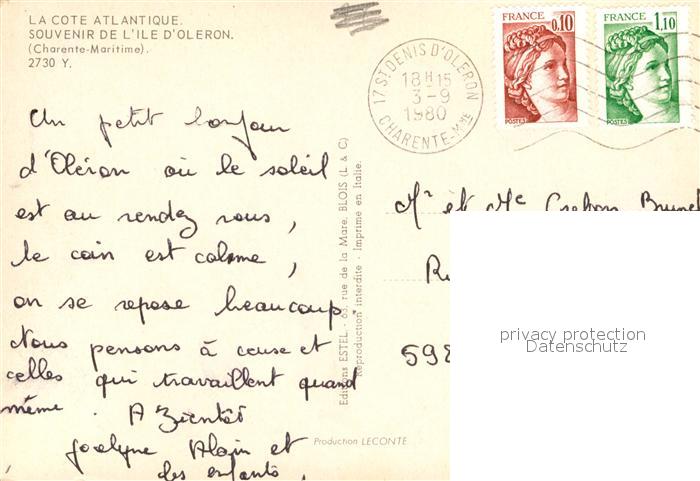 LA COTE ATLANTIQUE.
SOUVENIR DE L'ILE D'OLERON.
(Charente-Maritime).
2730 Y.
Un petit bonjour
d'Oléron où le soleil
est au rendez vous,
le coin est calme,
on se repose beaucoup.
Nous pensons à ceuse et
celles qui travaillent quand
même. A Bientôt
Jocelyne Alain et
des enfants,
Editions ESTEL. - 63, rue de la Mare, BLOIS (L & C)
Reproduction interdite - Imprimé en Italie.
Production LECONTE
17 ST DENIS D'OLERON
18H15
3-9
1980
CHARENTE-MME
FRANCE
0,10
POSTES
FRANCE
1,10
POSTES
Mr et Me Brunel
Ru
598
privacy protection
Datenschutz